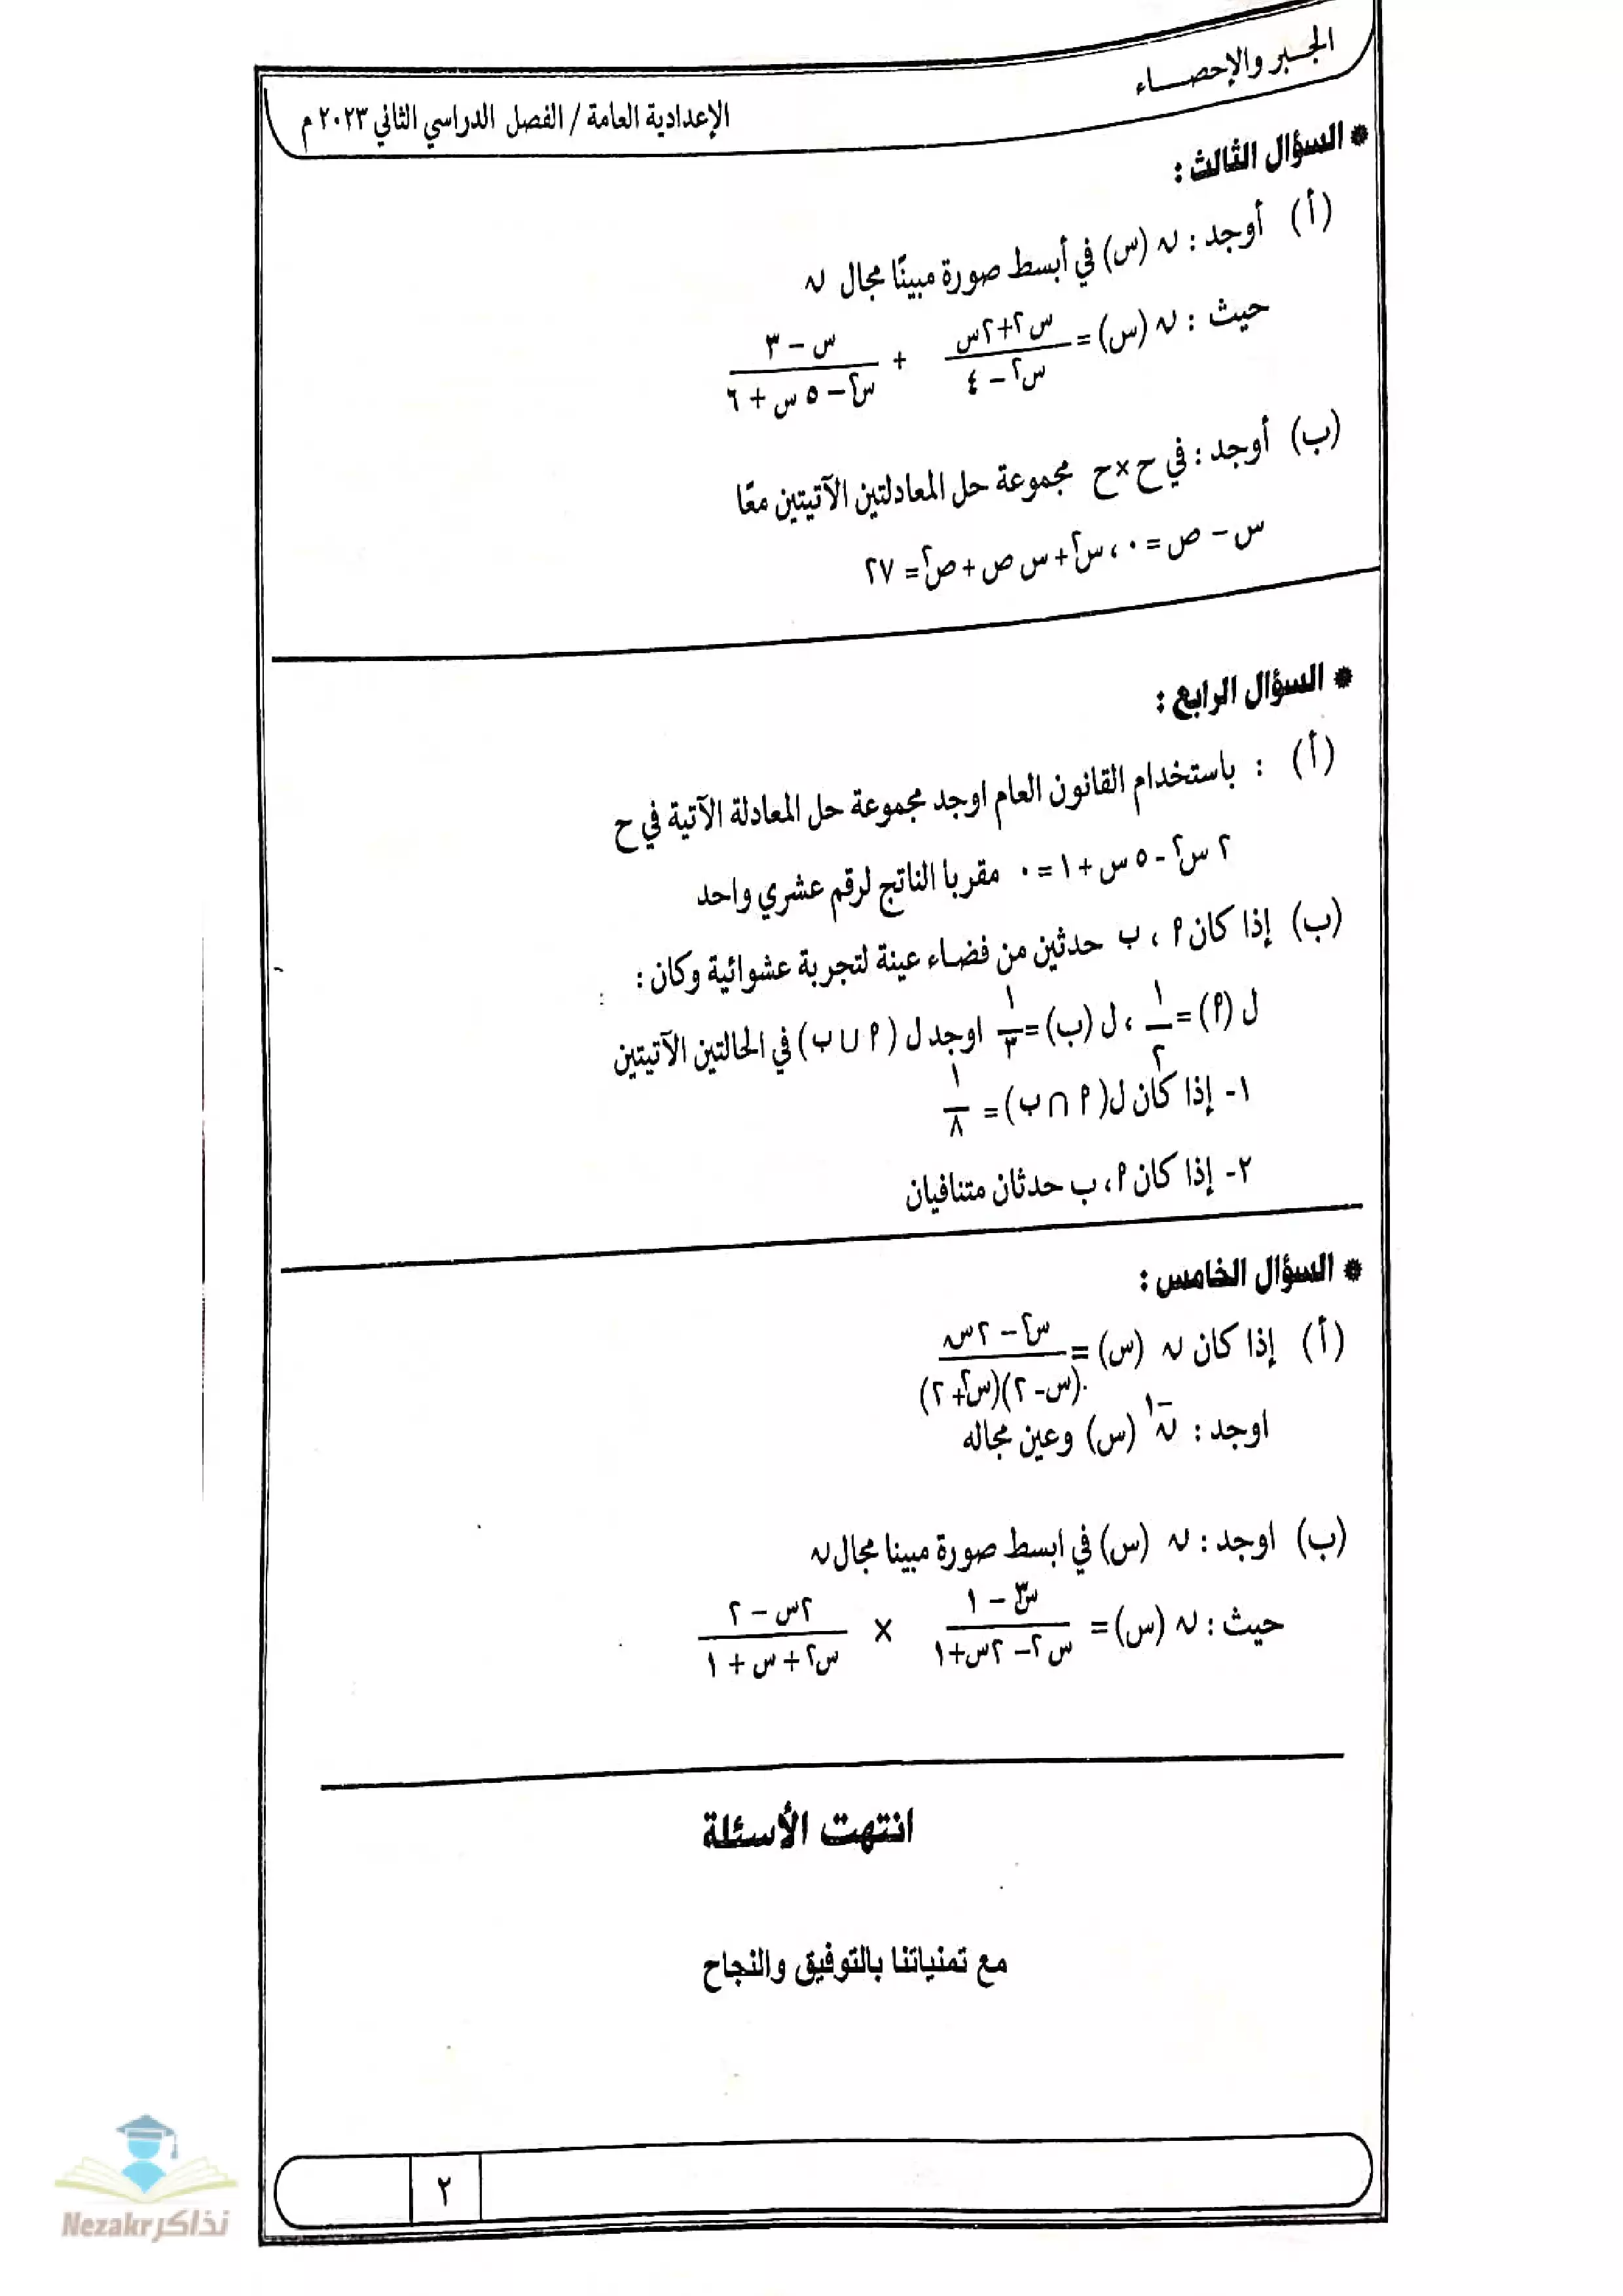 الجبر والإحصاء
الإعدادية العامة / الفصل الدراسي الثاني ٢٠٢٣ م
* السؤال الثالث :
(أ) أوجد : ن (س) في أبسط صورة مبينًا مجال ن
حيث : ن (س) = (س٢+٢س)/(س٢ − ٤) + (س − ٣)/(س٢ − ٥ س + ٦)
(ب) أوجد : في ح×ح مجموعة حل المعادلتين الآتيتين معًا
س − ص = ٠ ، س٢ + س ص + ص٢ = ٢٧
* السؤال الرابع :
(أ) : باستخدام القانون العام اوجد مجموعة حل المعادلة الآتية في ح
٢ س٢ - ٥ س + ١ = ٠ مقربا الناتج لرقم عشري واحد
(ب) إذا كان ٢ ، ب حدثين من فضاء عينة لتجربة عشوائية وكان :
ل (٢) = ١/٢ ، ل (ب) = ١/٣ اوجد ل ( ٢ ∪ ب) في الحالتين الآتيتين
١- إذا كان ل( ٢ ∩ ب) = ١/٨
٢- إذا كان ٢ ، ب حدثان متنافيان
* السؤال الخامس :
(أ) إذا كان ن (س) = (س٢ − ٢س)/((س− ٢)(س٢+ ٢))
اوجد : ن−١ (س) وعين مجاله
(ب) اوجد : ن (س) في ابسط صورة مبينا مجال ن
حيث : ن (س) = (س٣ − ١)/(س٢− ٢س+١) × (٢س − ٢)/(س٢ + س + ١)
انتهت الأسئلة
مع تمنياتنا بالتوفيق والنجاح
٢
نذاكر Nezakr